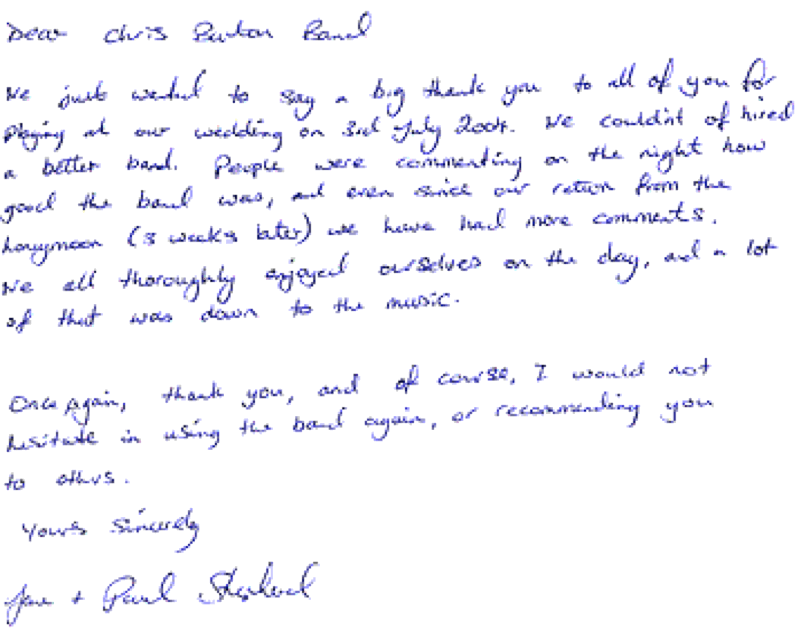 Dear Chris Burton Band
We just wanted to say a big thank you to all of you for
Playing at our wedding on 3rd July 2004. We couldn't of hired
a better band. People were commenting on the night how
good the band was, and even since our return from the
honeymoon (3 weeks later) we have had more comments.
We all thoroughly enjoyed ourselves on the day, and a lot
of that was down to the music.
Once Again, thank you, and of course, I would not
hesitate in using the band again, or recommending you
to others.
Yours Sincerely
+ Paul